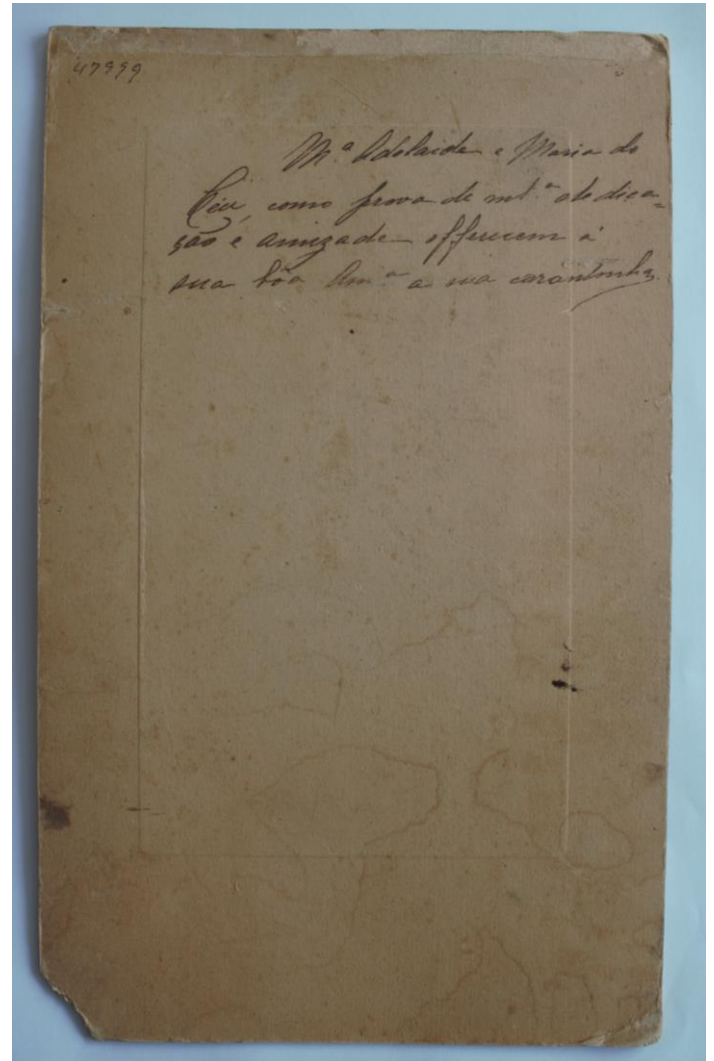 47999
M.ª Adelaide e Maria do
Céu, como prova de mt.ª dedica-
ção e amizade offerecem á
sua bôa Am.ª a sua carantonha.